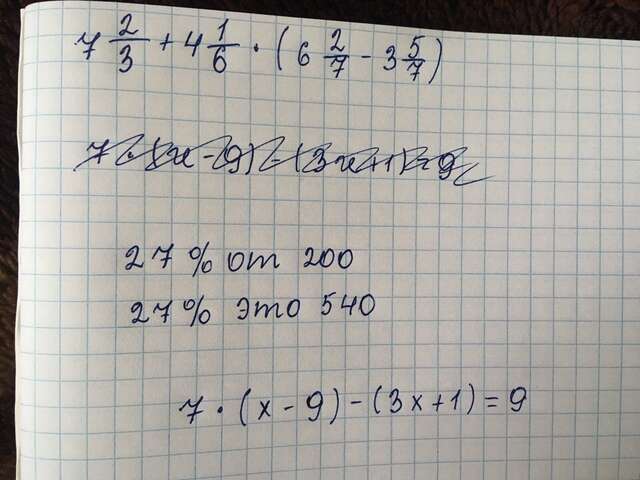 7 2/3 + 4 1/6 · (6 2/7 - 3 5/7)
7 · (x - 9) - (3x+1) = 9
27% от 200
27% это 540
7 · (x - 9) - (3x+1) = 9